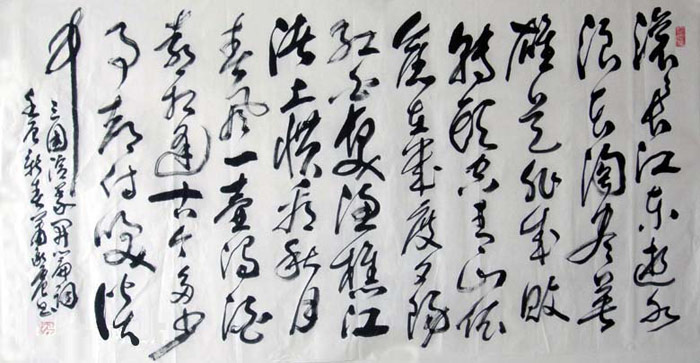 滚滚长江东逝水
浪花淘尽英
雄是非成败
转头空青山依
旧在几度夕阳
红白发渔樵江
渚上惯看秋月
春风一壶浊酒
喜相逢古今多少
事都付笑谈
中
三国演义开篇词
壬辰新春萧书